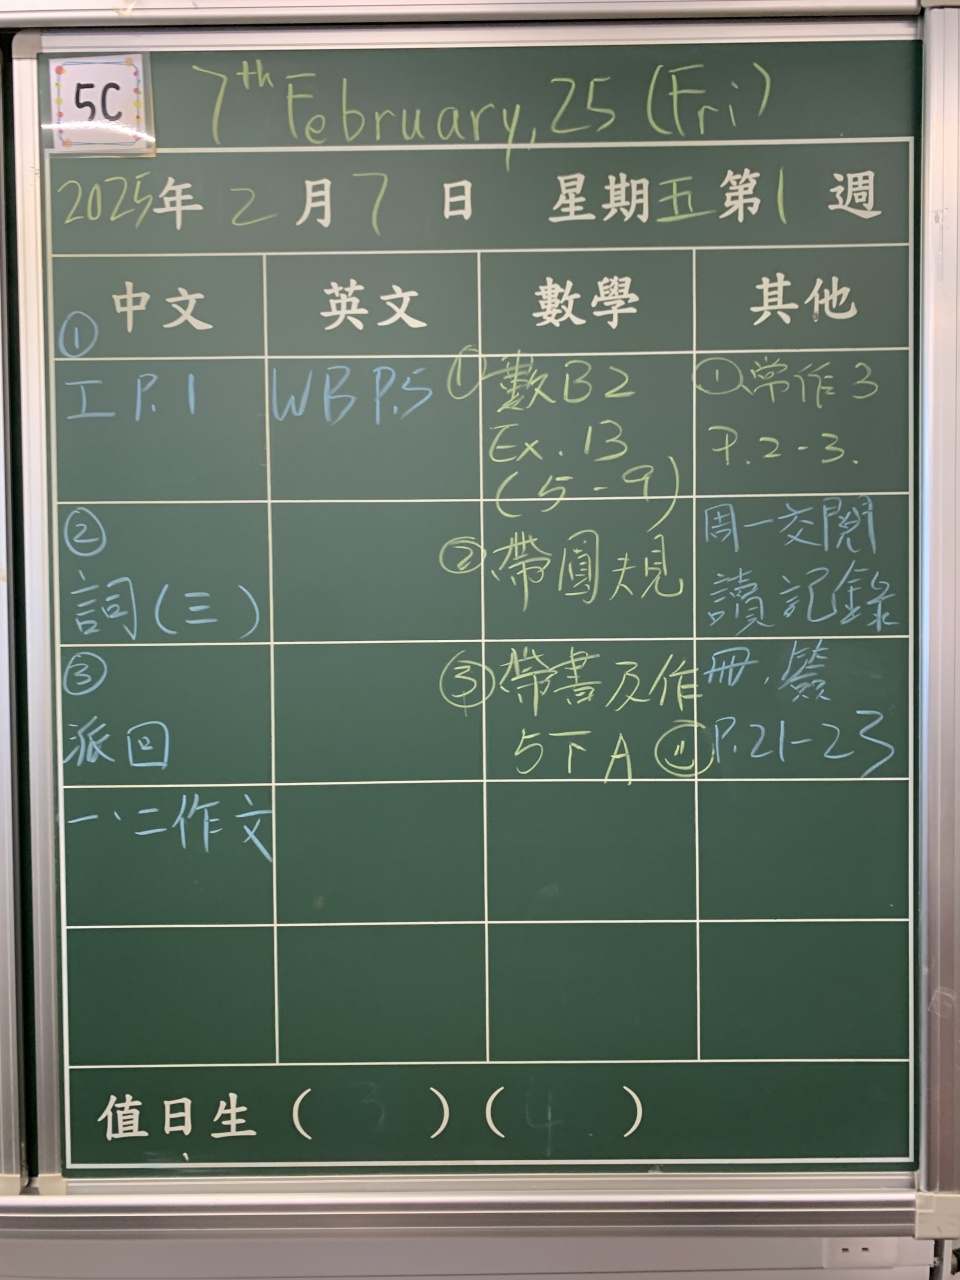 5C
7th February, 25 (Fri)
2025年 2 月 7 日 星期五第1週
中文 英文 數學 其他
①
工 P.1
②
詞(三)
③
派回
一、二作文
WB P.5
① 數B2
Ex. 13
(5-9)
② 帶圓規
③ 帶書及作
5下A
① 常作3
P.2-3.
周一交閱
讀記錄
冊,簽
P.21-23
值日生 ( 3 ) ( 4 )